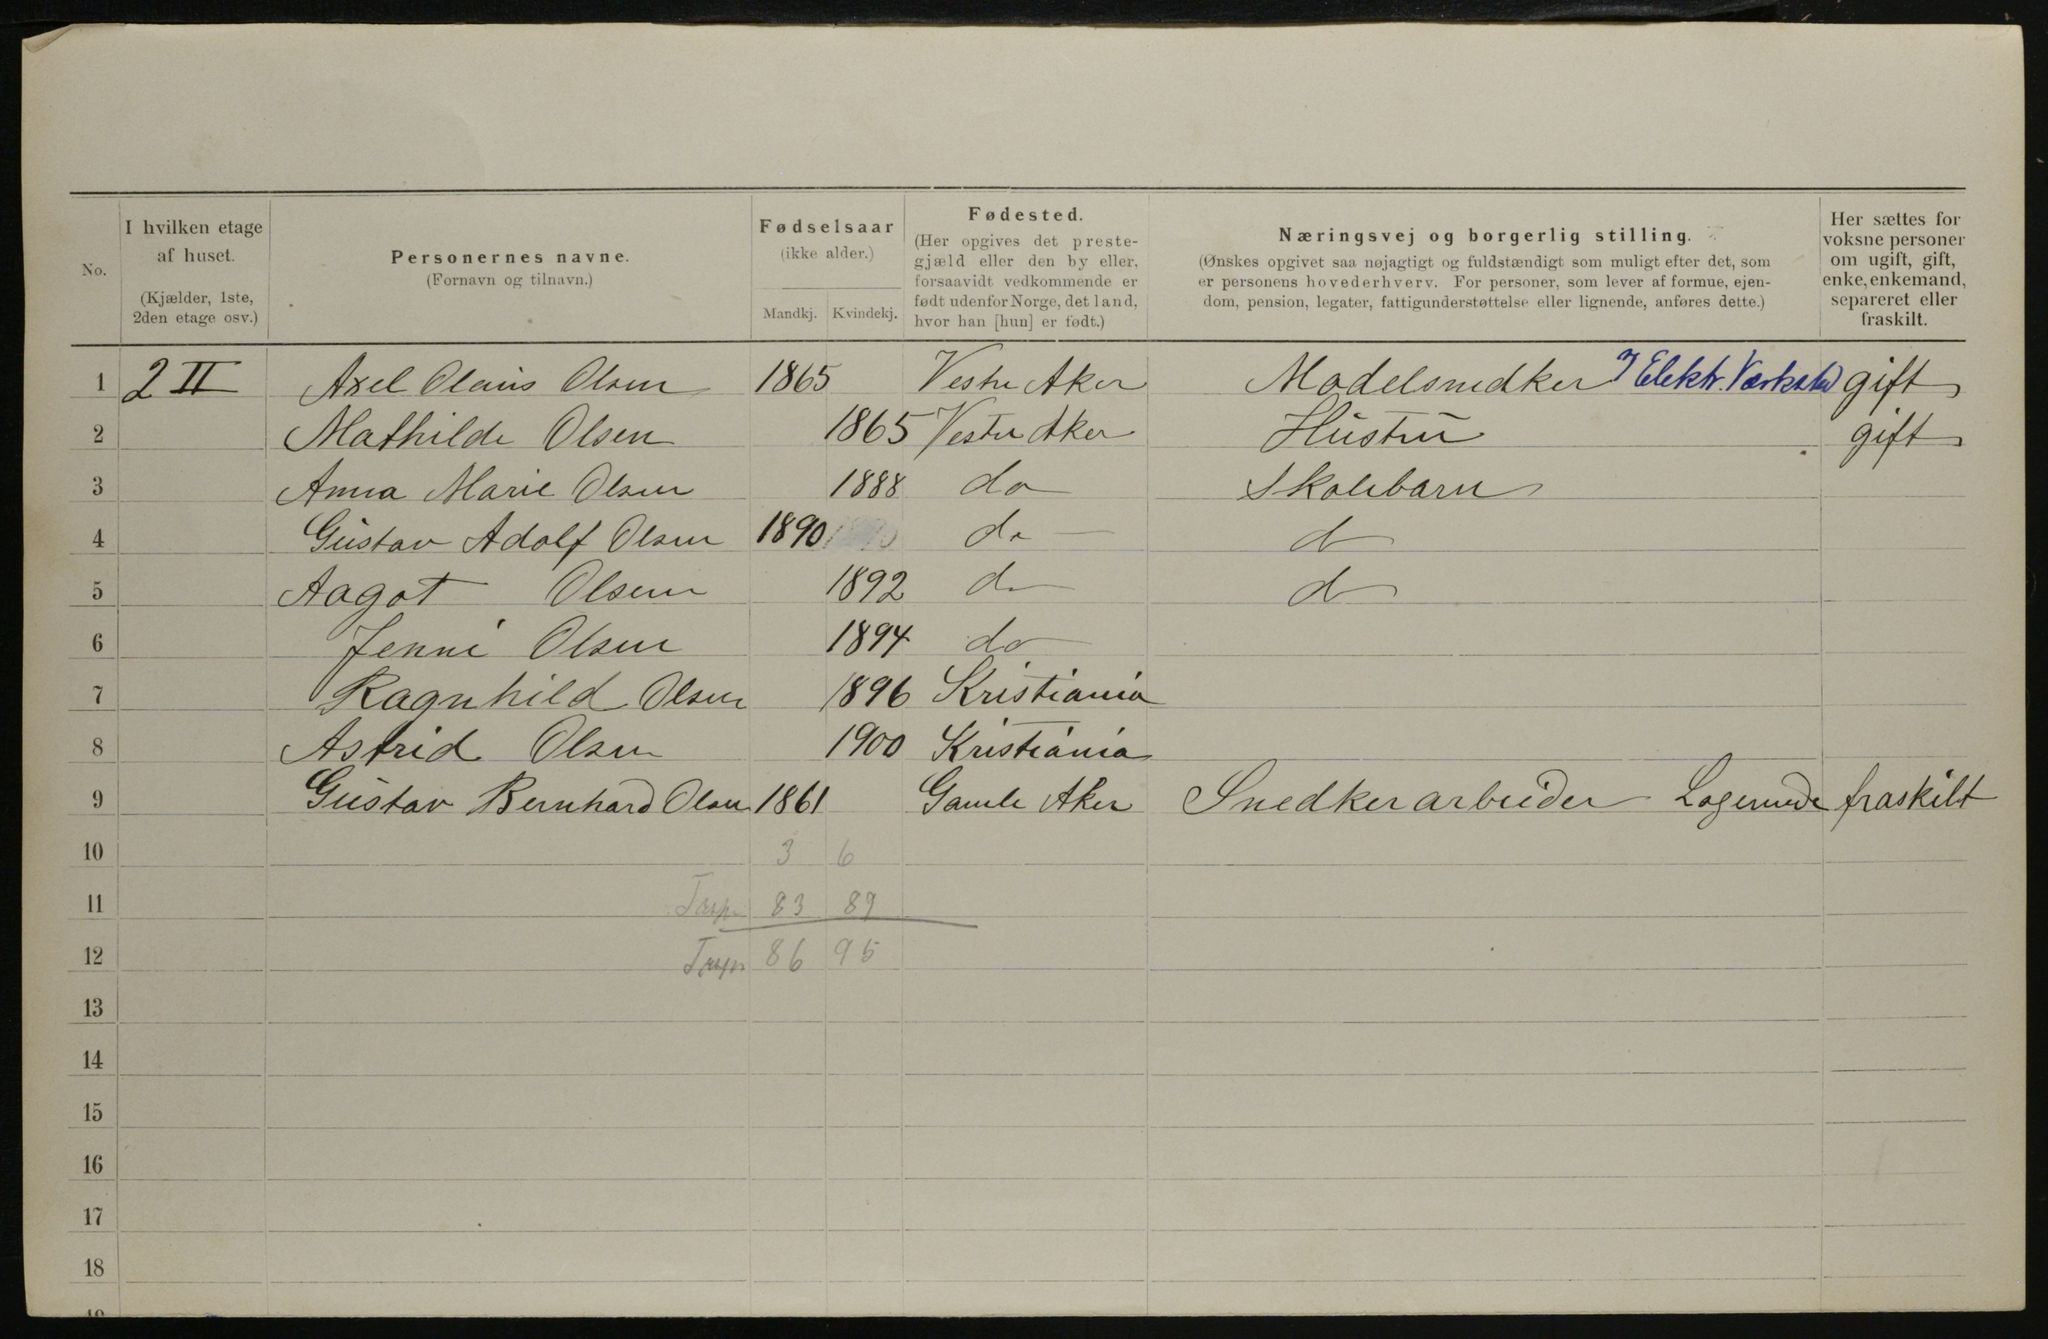 No.
I hvilken etage
af huset.
(Kjælder, 1ste,
2den etage osv.)
Personernes navne.
(Fornavn og tilnavn.)
Fødselsaar
(ikke alder.)
Mandkj. Kvindekj.
Fødested.
(Her opgives det preste-
gjæld eller den by eller,
forsaavidt vedkommende er
født udenfor Norge, det land,
hvor han [hun] er født.)
Næringsvej og borgerlig stilling.
(Ønskes opgivet saa nøjagtigt og fuldstændigt som muligt efter det, som
er personens hovederhverv. For personer, som lever af formue, ejen-
dom, pension, legater, fattigunderstøttelse eller lignende, anføres dette.)
Her sættes for
voksne personer
om ugift, gift,
enke, enkemand,
separeret eller
fraskilt.
1 2 II Axel Olaüs Olsen 1865 Vestre Aker Modelsnedker I Elektr. Værksted gift
2 Mathilde Olsen 1865 Vestre Aker Hüstrü gift
3 Anna Marie Olsen 1888 do Skolebarn
4 Güstav Adolf Olsen 1890 do d
5 Aagot Olsen 1892 do d
6 Jenni Olsen 1894 do
7 Ragnhild Olsen 1896 Kristiania
8 Astrid Olsen 1900 Kristiania
9 Güstav Bernhard Olsen 1861 Gamle Aker Snedkerarbeider Logerende fraskilt
10 3 6
11 83 89
12 86 95
13
14
15
16
17
18